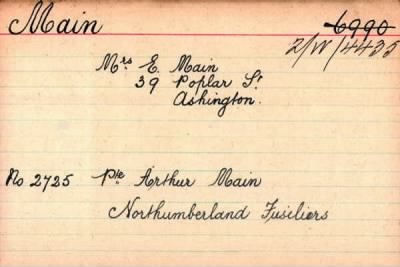 Main
6990
2/W/4425
Mrs E. Main
39 Poplar St.
Ashington.
No 2725 Pte Arthur Main
Northumberland Fusiliers